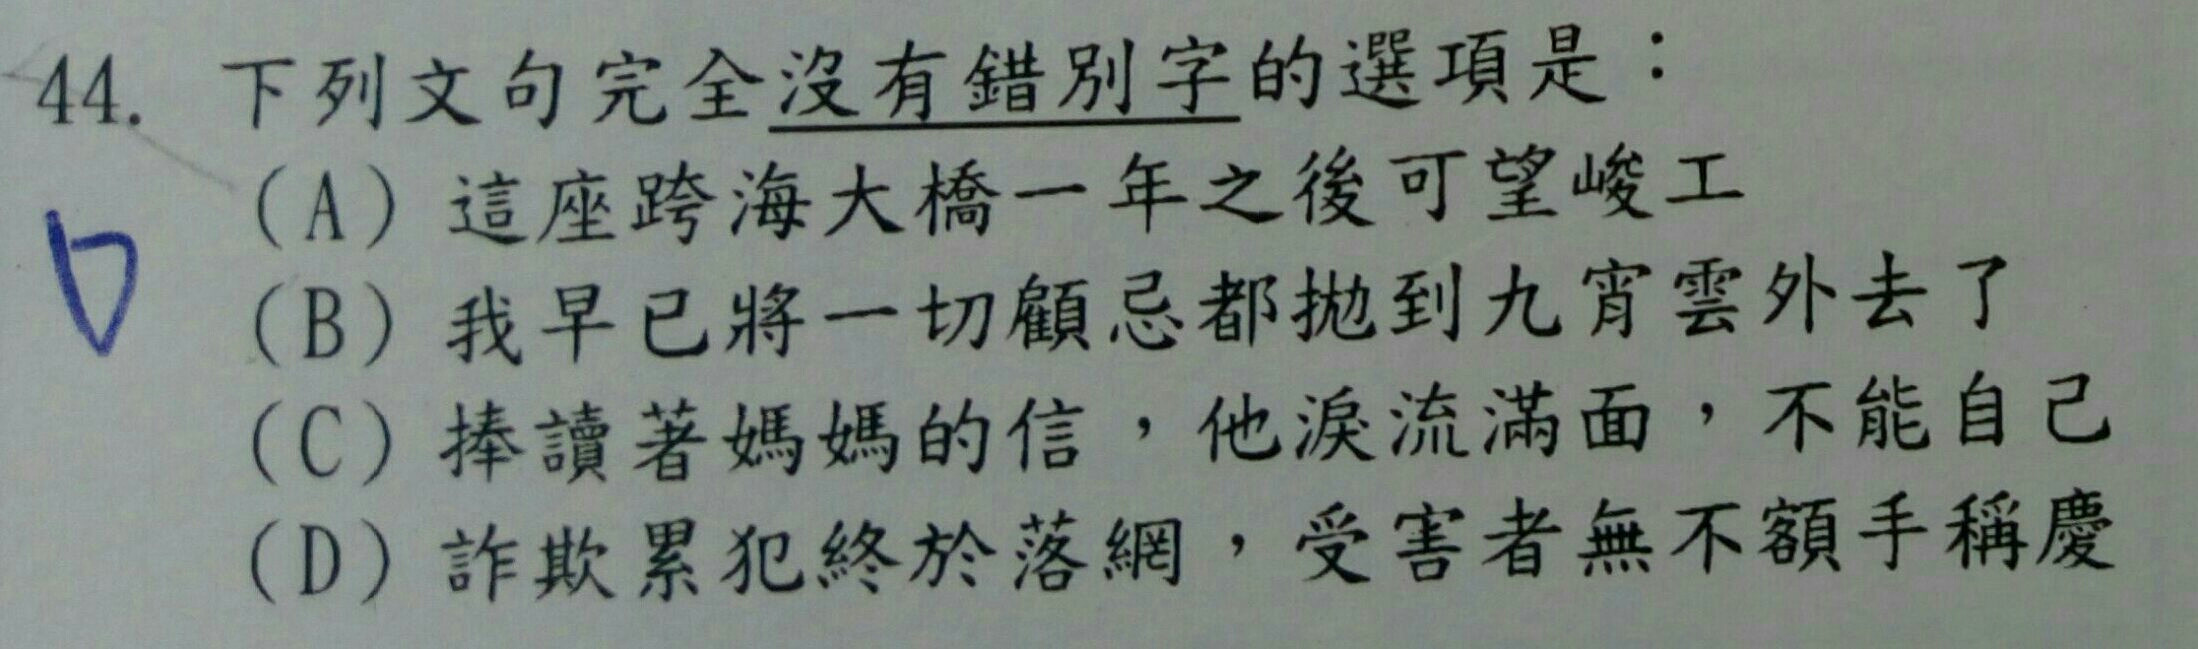 44. 下列文句完全沒有錯別字的選項是：
(A) 這座跨海大橋一年之後可望峻工
(B) 我早已將一切顧忌都拋到九宵雲外去了
(C) 捧讀著媽媽的信，他淚流滿面，不能自己
(D) 詐欺累犯終於落網，受害者無不額手稱慶